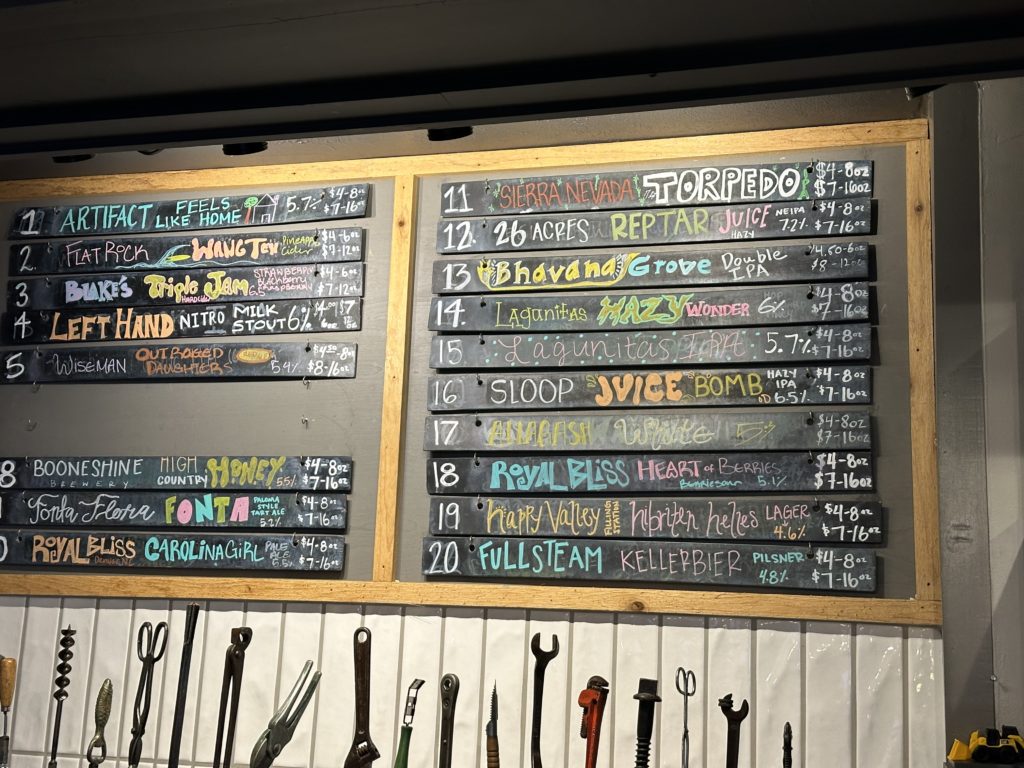 1 ARTIFACT FEELS LIKE HOME 5.7% $4-8oz $7-16oz
2. FLAT ROCK WANG TEN PINEAPPLE CIDER $4-6oz $7-12oz
3 BLAKE'S TRIPLE JAM HARDCIDER 6.5 STRAWBERRY BLACKBERRY RASPBERRY $4-6oz $7-12oz
4. LEFT HAND NITRO MILK STOUT 6%
5 WISEMAN OUTRAGED DAUGHTERS 5.9% $4.50-8oz $8-16oz
8 BOONESHINE BREWERY HIGH COUNTRY HONEY 5.5% $4-8oz $7-16oz
Fonta Flora FONTA PALOMA STYLE TART ALE 5.2% $4-8oz $7-16oz
0 ROYAL BLISS CAROLINA GIRL PALE ALE 5.5% $4-8oz $7-16oz
11 SIERRA NEVADA TORPEDO $4-8oz $7-16oz
12. 26 ACRES REPTAR JUICE HAZY NEIPA 7.2% $4-8oz $7-16oz
13 Bhavana Grove Double IPA $4.50-6oz $8-12oz
14. Lagunitas HAZY WONDER 6% $4-8oz $7-16oz
15 Lagunitas IPA 5.7% $4-8oz $7-16oz
16 SLOOP JUICE BOMB HAZY IPA 6.5% $4-8oz $7-16oz
17 White 5% $4-8oz $7-16oz
18 ROYAL BLISS HEART OF BERRIES 5.1% $4-8oz $7-16oz
19 Happy Valley FILLING STATION hibriten helles LAGER 4.6% $4-8oz $7-16oz
20. FULLSTEAM KELLERBIER PILSNER 4.8% $4-8oz $7-16oz